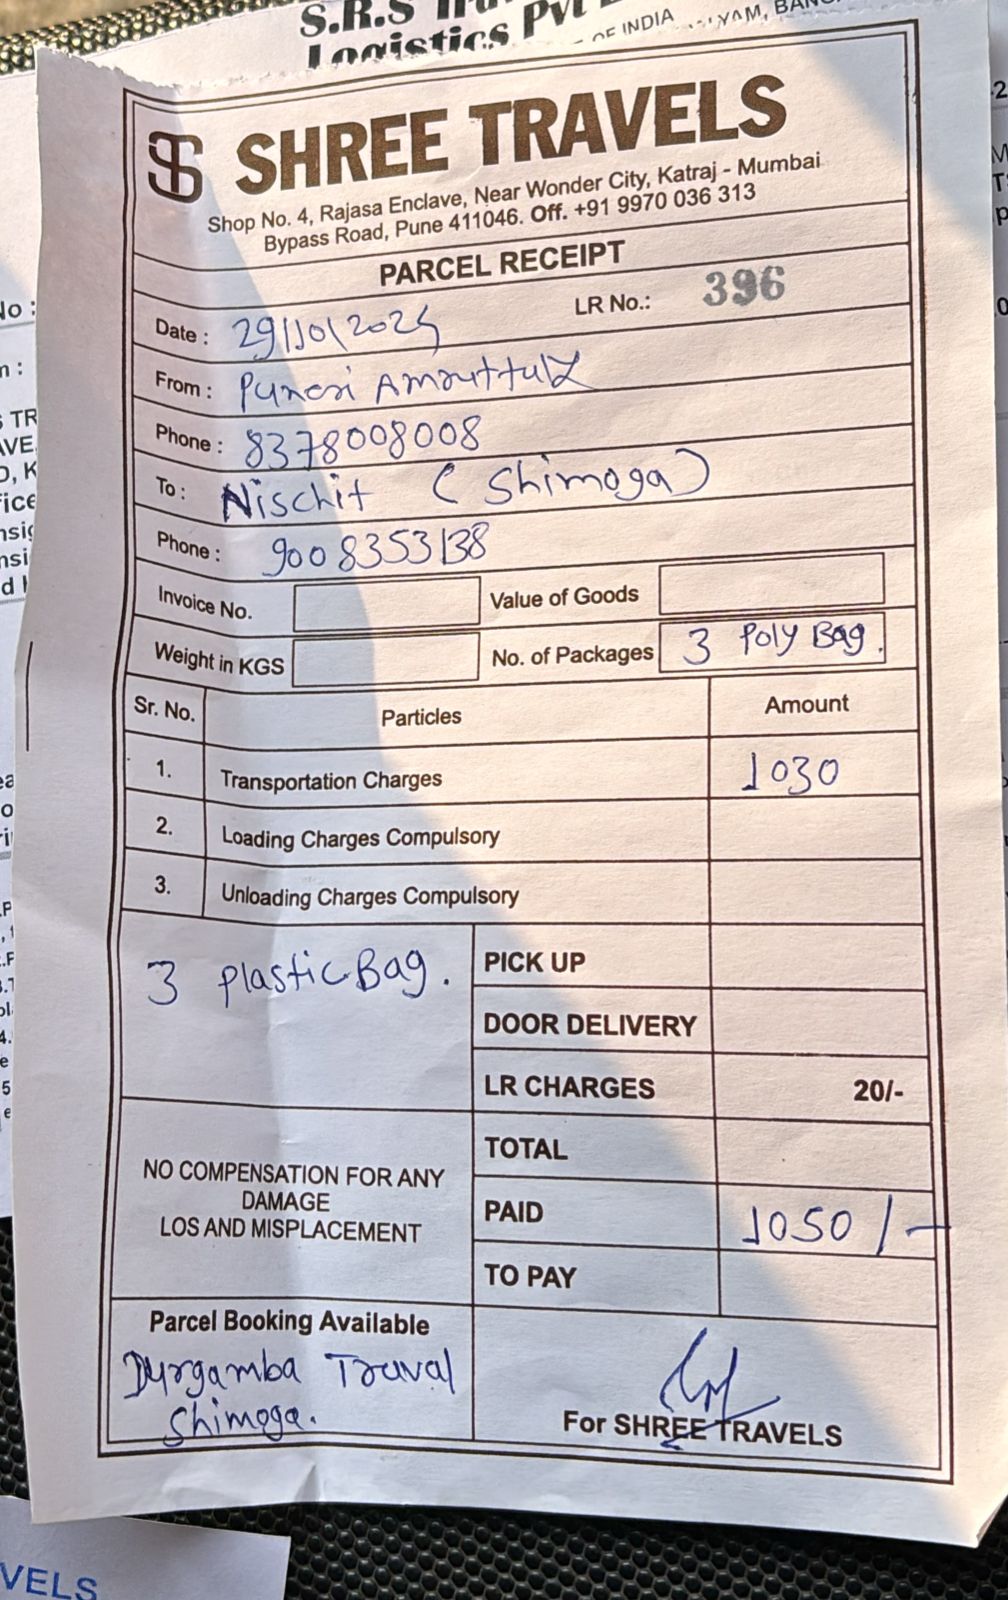 S.R.S
Logistics Pvt
OF INDIA
SHREE TRAVELS
Shop No. 4, Rajasa Enclave, Near Wonder City, Katraj - Mumbai
Bypass Road, Pune 411046. Off. +91 9970 036 313
PARCEL RECEIPT
LR No.: 396
Date : 29/10/2025
From : Puneri Amruttulya
Phone : 8378008008
To : Nischit ( Shimoga )
Phone : 9008353138
Invoice No. Value of Goods
Weight in KGS No. of Packages 3 Poly Bag.
Sr. No. Particles Amount
1. Transportation Charges 1030
2. Loading Charges Compulsory
3. Unloading Charges Compulsory
3 PlasticBag.
PICK UP
DOOR DELIVERY
LR CHARGES 20/-
TOTAL
NO COMPENSATION FOR ANY
DAMAGE
LOS AND MISPLACEMENT
PAID 1050/-
TO PAY
Parcel Booking Available
Durgamba Traval
Shimoga.
For SHREE TRAVELS
VELS